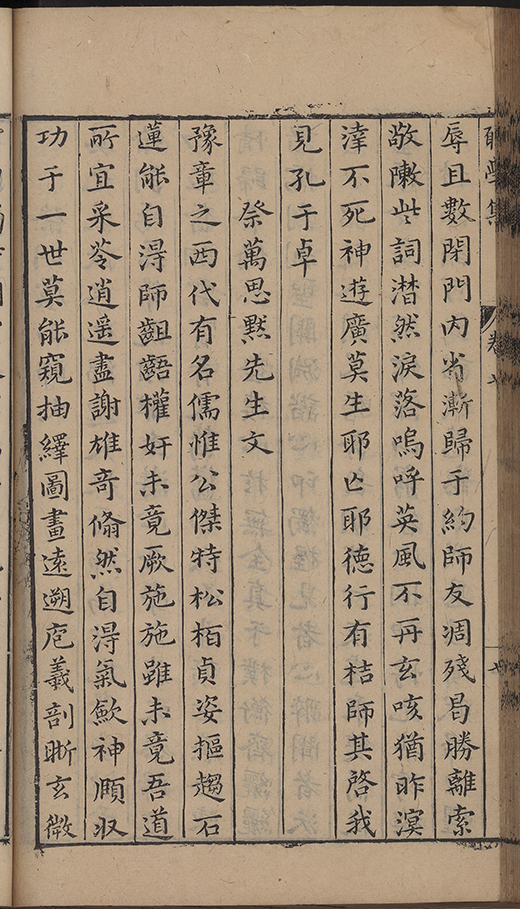 願學集 卷七
辱且數閉門內省漸歸于約師友凋殘曷勝離索
敬陳些詞潸然淚落嗚呼英風不再玄咳猶昨溟
涬不死神遊廣莫生耶亡耶德行有桔師其啓我
見孔于卓
祭萬思默先生文
豫章之西代有名儒惟公傑特松栢貞姿摳趨石
蓮能自淂師齟齬權奸未竟厥施施雖未竟吾道
所宜采苓逍遥盡謝雄竒翛然自淂氣歛神頤収
功于一世莫能窺抽繹圖畫遠遡庖羲剖晣玄微